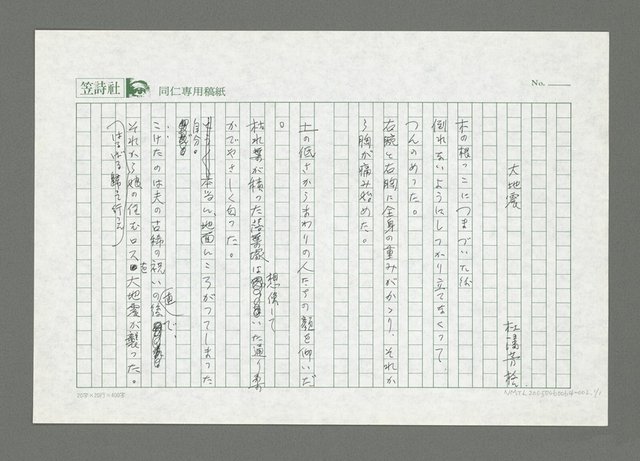 笠詩社
同仁専用稿紙
No.
大地震
杜潘芳格
木の根っこにつまづいた後
倒れないようにしっかり立てなくって、
つんのめった。
右腕と右胸に全身の重みがかゝり、それか
ら胸が痛み始めた。
土の低さからまわりの人たちの顔を仰いだ
。
枯れ葉が積った落葉塚は想像していた通り
かでやさしく匂った。
本当に地面にころがってしまった
自分。
こけたのは夫の古稀の祝いの後で、
それから娘の住むロスを大地震が襲った。
(はるばる帰えり行く)
20字×20行=400字